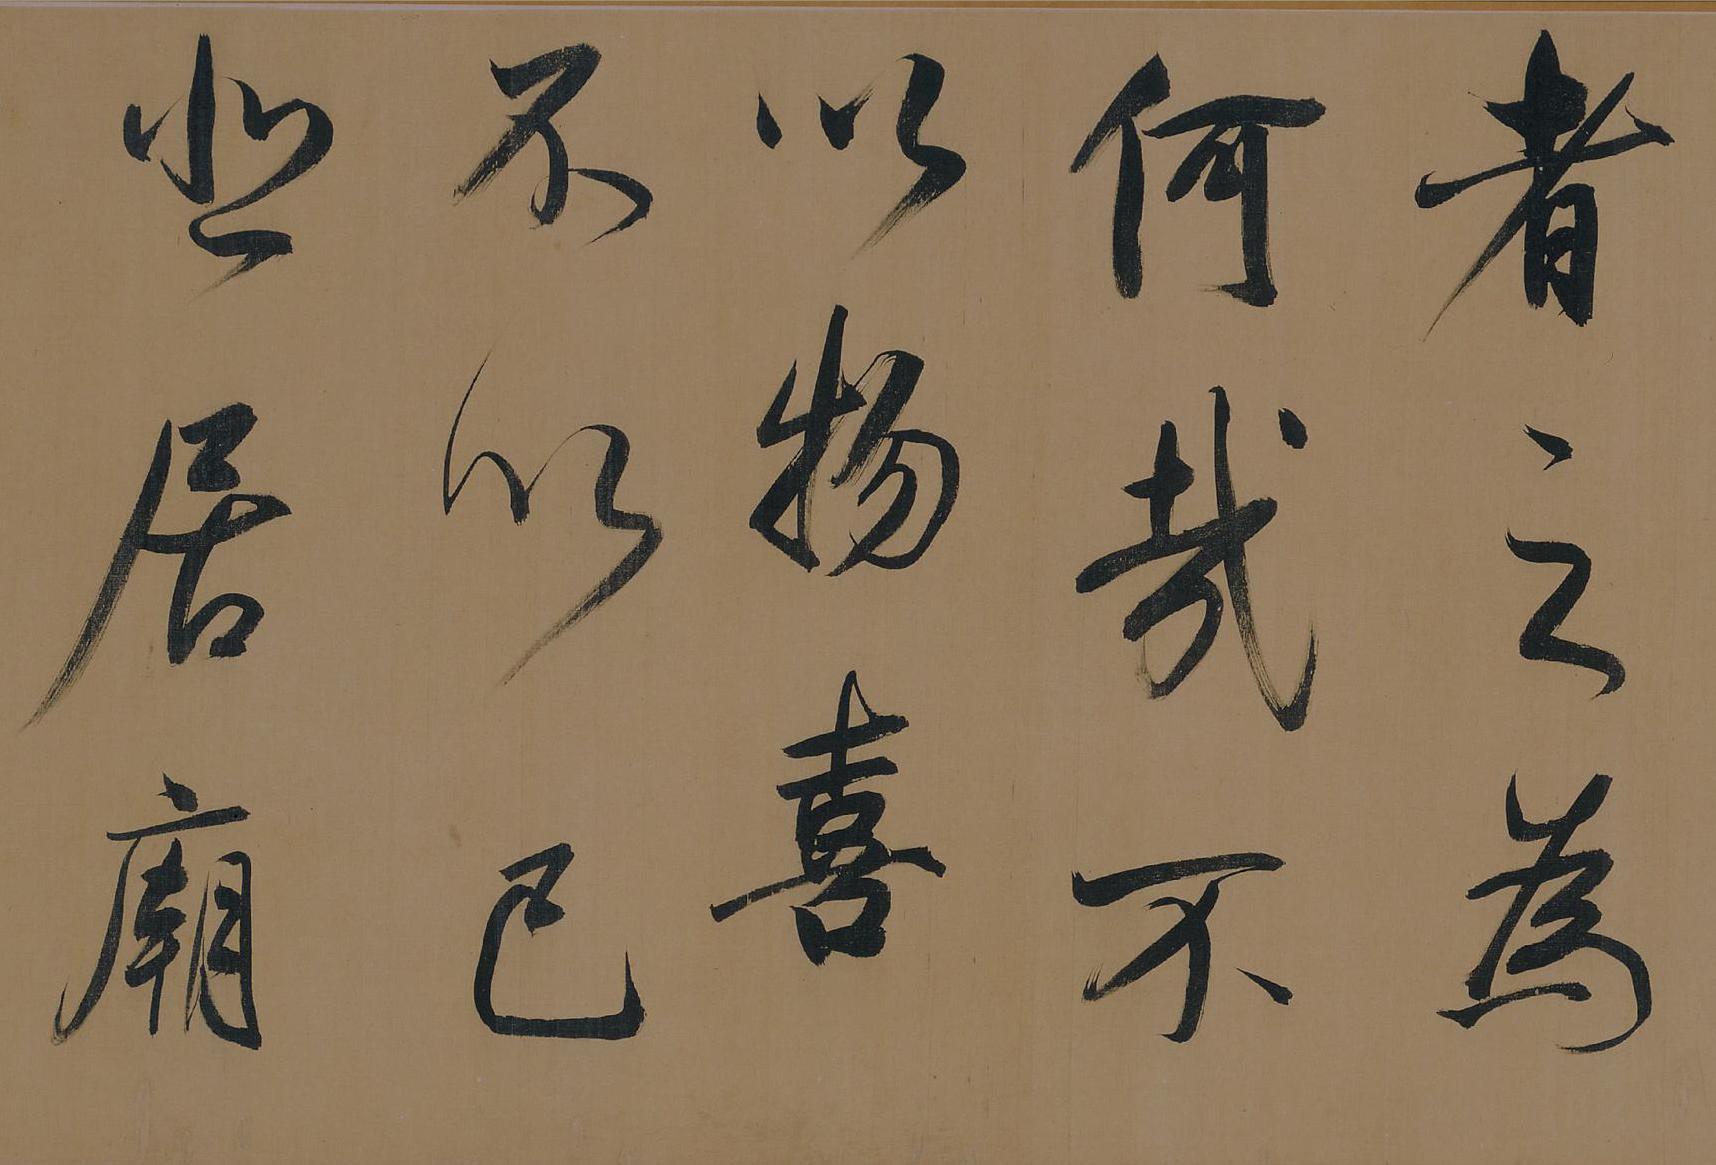 者之為
何哉不
以物喜
不以己
悲居廟